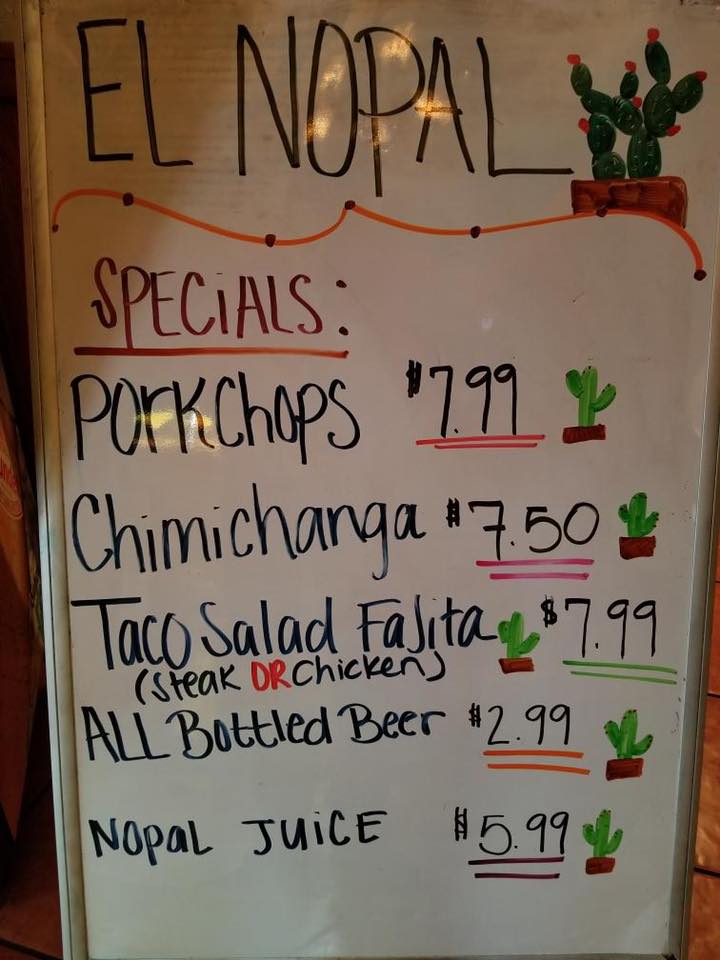 EL NOPAL
SPECiALS:
PorkChops $7.99
Chimichanga $7.50
Taco Salad Fajita $7.99
(Steak OR Chicken)
ALL Bottled Beer $2.99
NopaL JUiCE $5.99